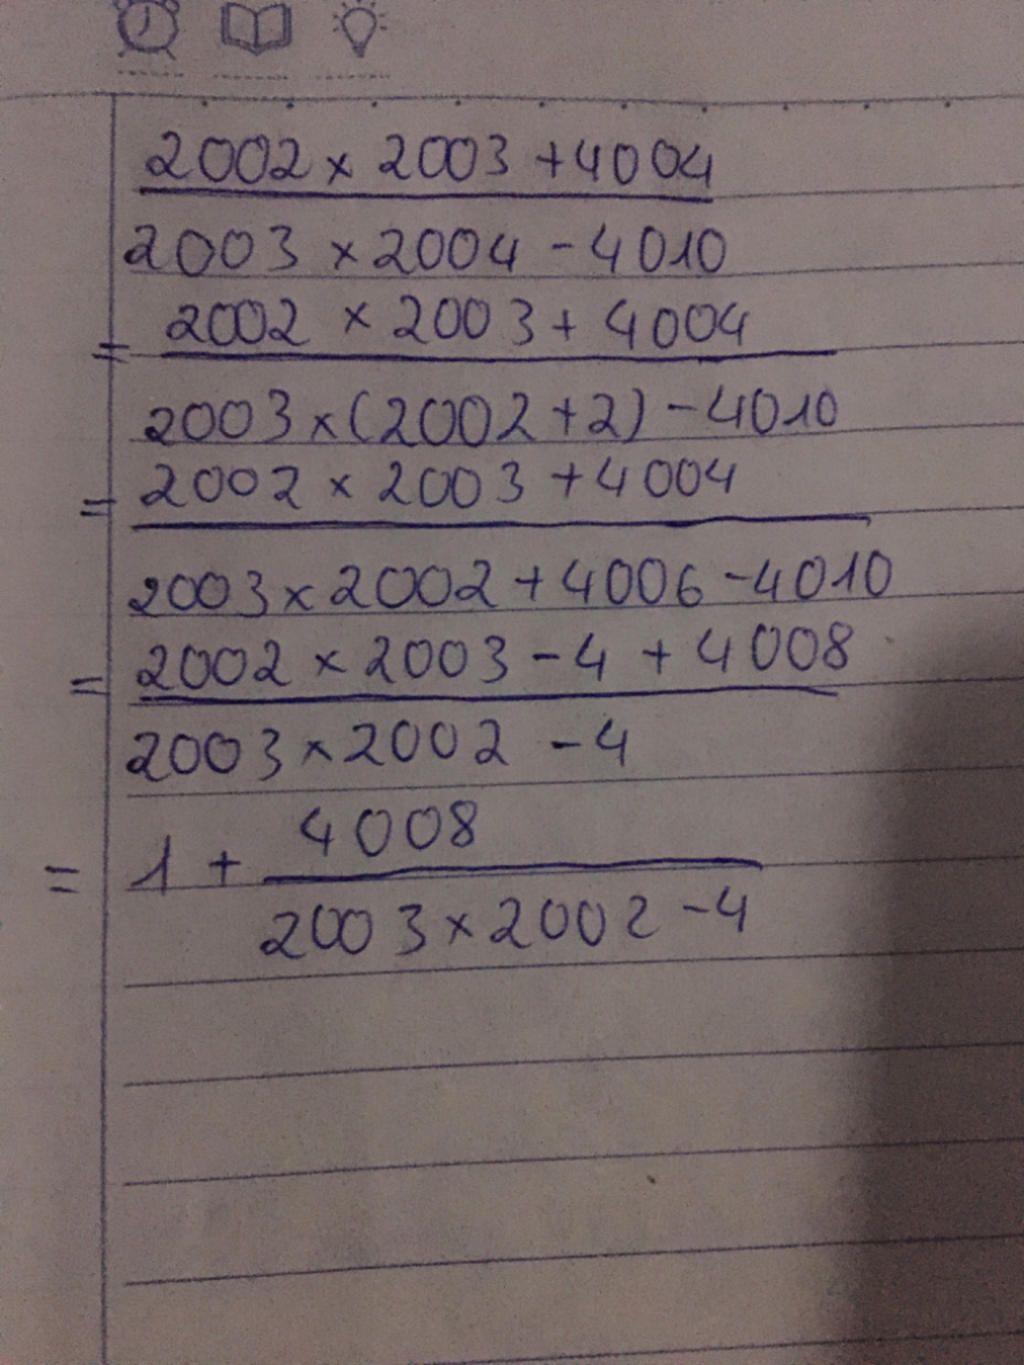 2002 × 2003 + 4004
2003 × 2004 - 4010
2002 × 2003 + 4004
=
2003 × (2002 + 2) - 4010
2002 × 2003 + 4004
=
2003 × 2002 + 4006 - 4010
2002 × 2003 - 4 + 4008
=
2003 × 2002 - 4
4008
= 1 +
2003 × 2002 - 4